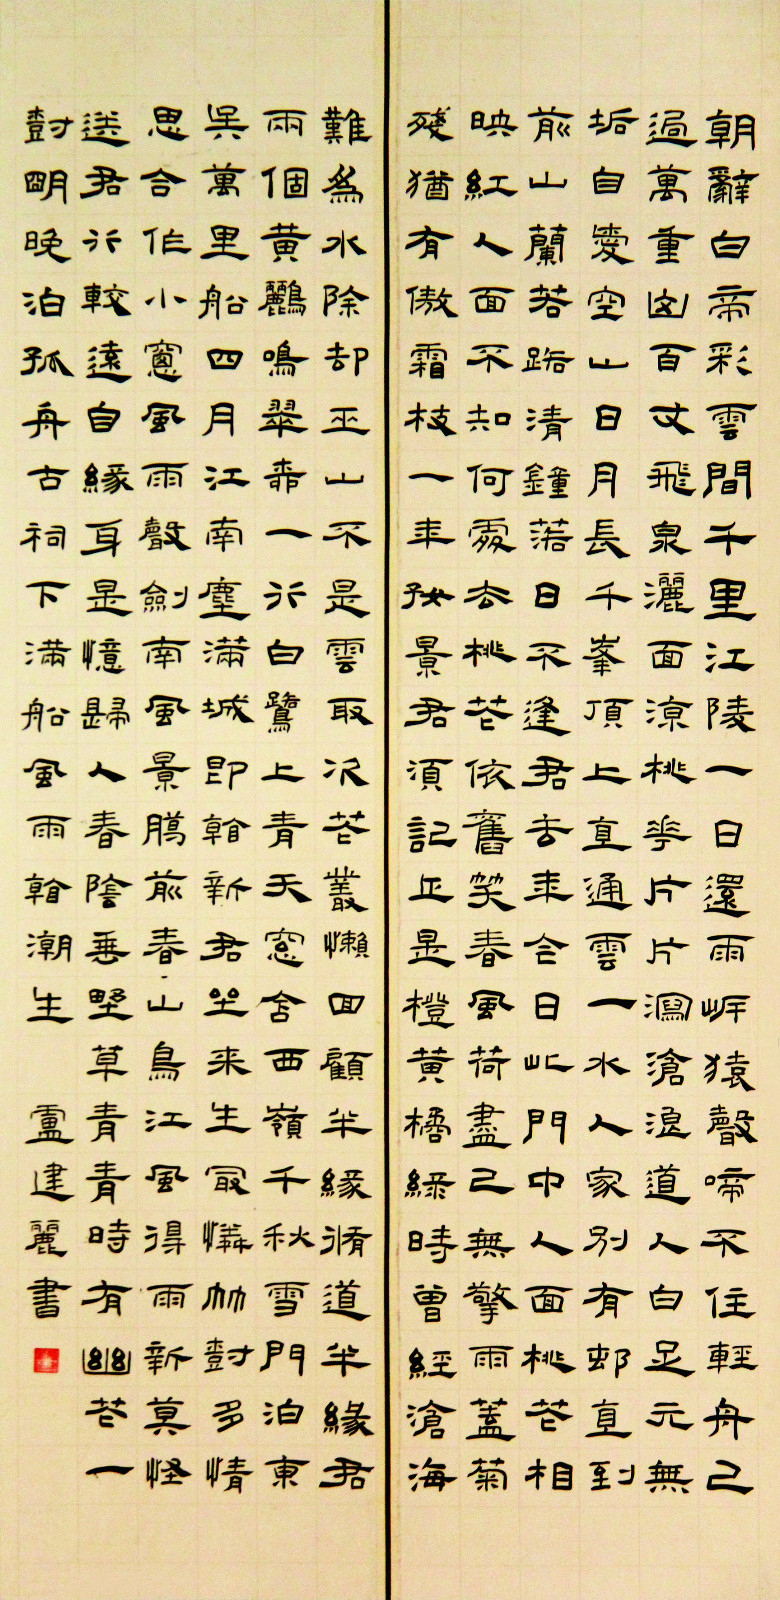 朝辭白帝彩雲間千里江陵一日還兩岸猿聲啼不住輕舟已
過萬重山百丈飛泉灑面涼桃華片片瀉滄浪道人白足元無
垢自愛空山日月長千峯頂上直通雲一水人家別有邨直到
前山蘭若路清鐘落日不逢君去年今日此門中人面桃花相
映紅人面不知何處去桃花依舊笑春風荷盡已無擎雨蓋菊
殘猶有傲霜枝一年好景君須記正是橙黃橘綠時曾經滄海
難為水除却巫山不是雲取次花叢懶回顧半緣脩道半緣君
兩個黃鸝鳴翠柳一行白鷺上青天窗含西嶺千秋雪門泊東
吳萬里船四月江南塵滿城即看新君坐来生冣憐竹尌多情
思合作小窗風雨聲劍南風景臘前春山鳥江風得雨新莫怪
送君行較遠自緣身是憶歸人春陰垂野草青青時有幽花一
尌明晚泊孤舟古祠下滿船風雨看潮生 盧建麗書